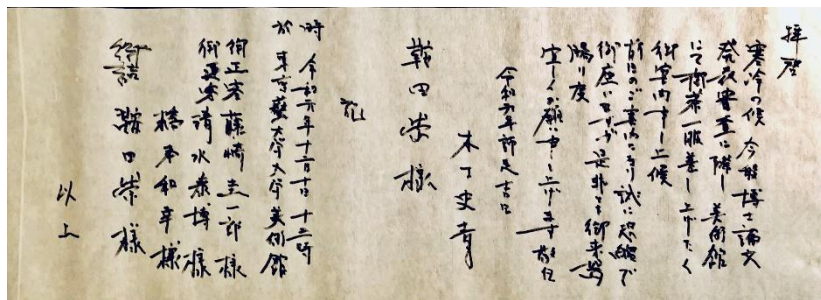 拝啓
寒冷の候 今般博士論文
発表審査に際し 美術館
にて粗茶一服差し上げたく
御案内申し上候
前日のご案内となり誠に恐縮で
御座いますが 是非とも御来駕
賜り度
宜しくお願い申し上げます 敬白
令和元年師走吉日
木下史青
鞍田崇様
記
時 令和元年十二月十日 十三時
於 東京藝大大学美術館
御正客 藤崎圭一郎様
御連客 清水泰博様
橋本和幸様
御詰 鞍田崇様
以上